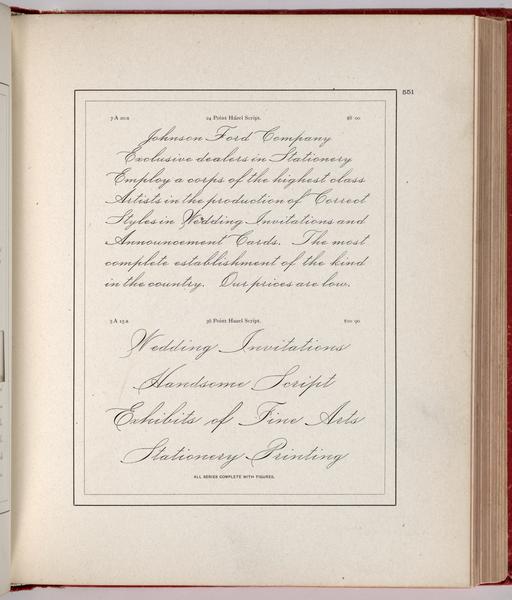 551
7 A 20 a 24 Point Hazel Script. $8 00
Johnson Ford Company
Exclusive dealers in Stationery
Employ a corps of the highest class
Artists in the production of Correct
Styles in Wedding Invitations and
Announcement Cards. The most
complete establishment of the kind
in the country. Our prices are low.
5 A 15 a 36 Point Hazel Script. $10 90
Wedding Invitations
Handsome Script
Exhibits of Fine Arts
Stationery Printing
ALL SERIES COMPLETE WITH FIGURES.